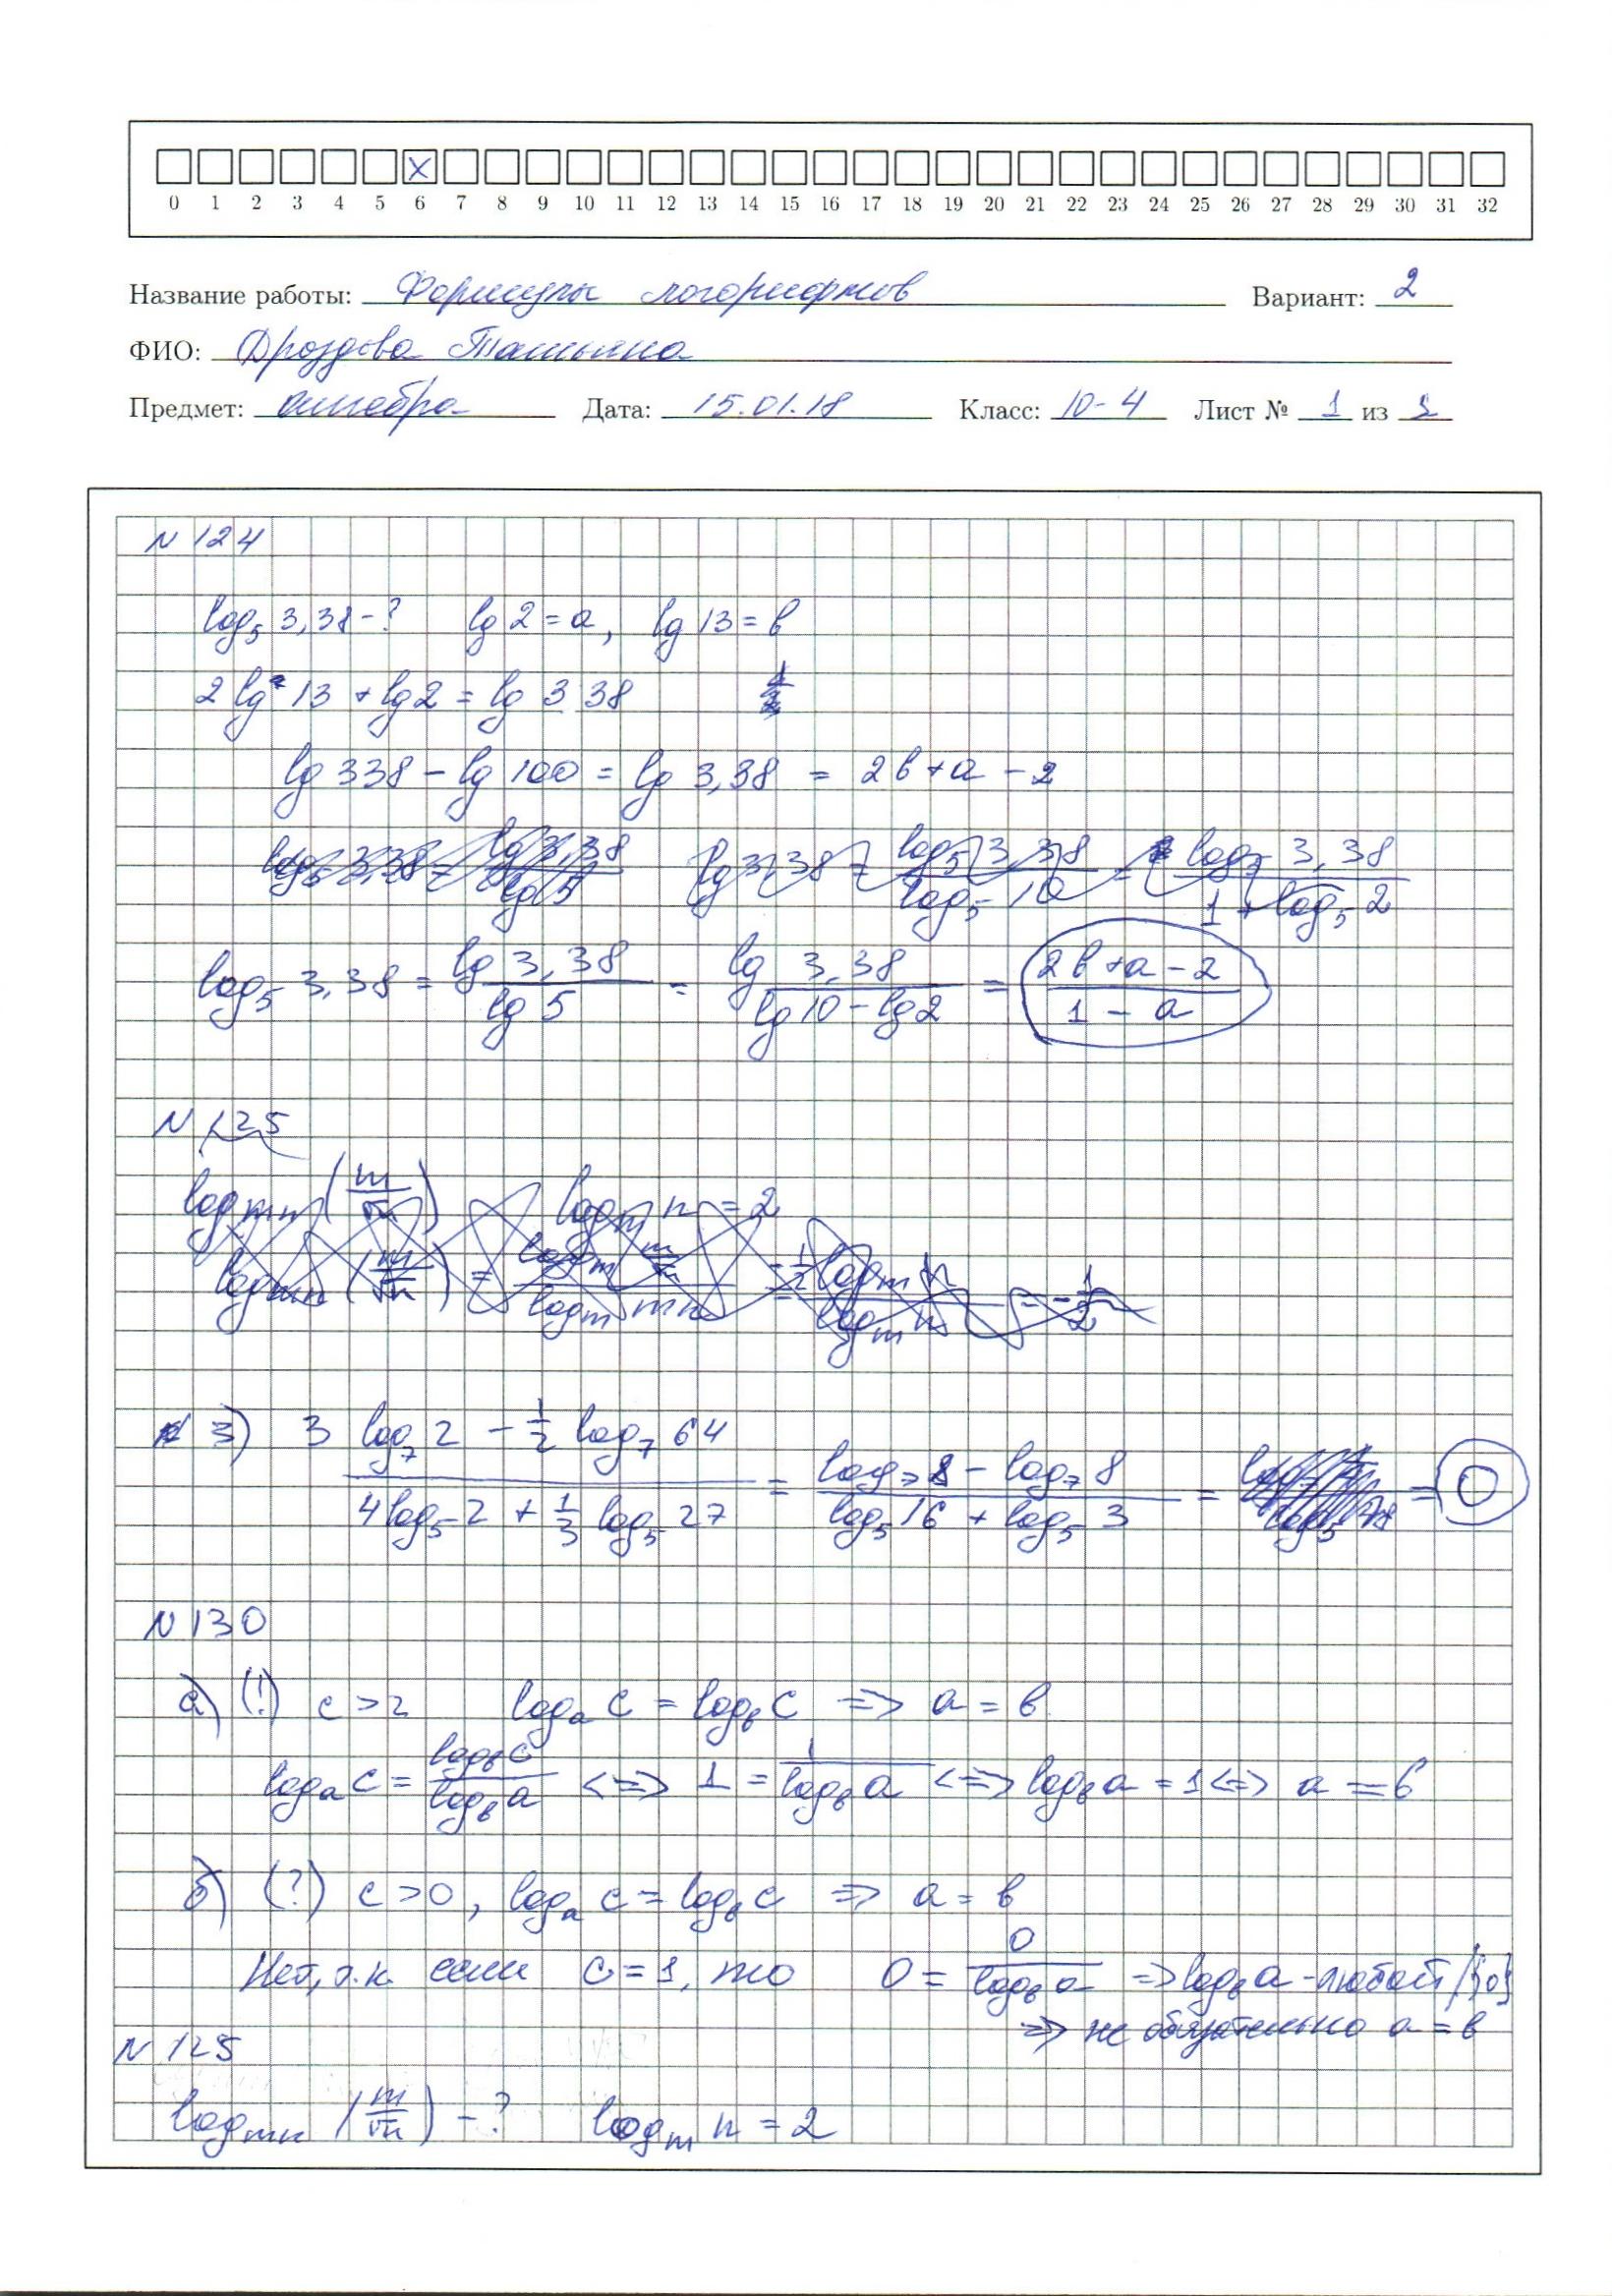 X
0 1 2 3 4 5 6 7 8 9 10 11 12 13 14 15 16 17 18 19 20 21 22 23 24 25 26 27 28 29 30 31 32
Название работы: Формулы логорифмов Вариант: 2
ФИО: Дроздова Татьяна
Предмет: алгебра Дата: 15.01.18 Класс: 10-4 Лист № 1 из
N 124
log₅ 3,38 - ? lg 2 = a, lg 13 = b
2 lg 13 + lg 2 = lg 338
lg 338 - lg 100 = lg 3,38 = 2b + a - 2
log₅ 3,38 = lg 3,38 / lg 5 lg 3,38 = log₅ 3,38 / log₅ 10 = log₅ 3,38 / (1 + log₅ 2)
log₅ 3,38 = lg 3,38 / lg 5 = lg 3,38 / (lg 10 - lg 2) = (2b + a - 2) / (1 - a)
N 125
log_mn (m/√n) = log_m n = 2
log_mn (m/√n) =
3) (3 log₇ 2 - 1/2 log₇ 64) / (4 log₅ 2 + 1/3 log₅ 27) = (log₇ 8 - log₇ 8) / (log₅ 16 + log₅ 3) = = 0
N 130
а) (!) c > 1 log_a c = log_b c => a = b
log_a c = log_b c / log_b a <=> 1 = 1 / log_b a <=> log_b a = 1 <=> a = b
б) (?) c > 0, log_a c = log_b c => a = b
Нет, т.к. если c = 1, то 0 = 0 / log_b a => log_b a - любой /{0}
=> не обязательно a = b
N 125
log_mn (m/√n) - ? log_m n = 2